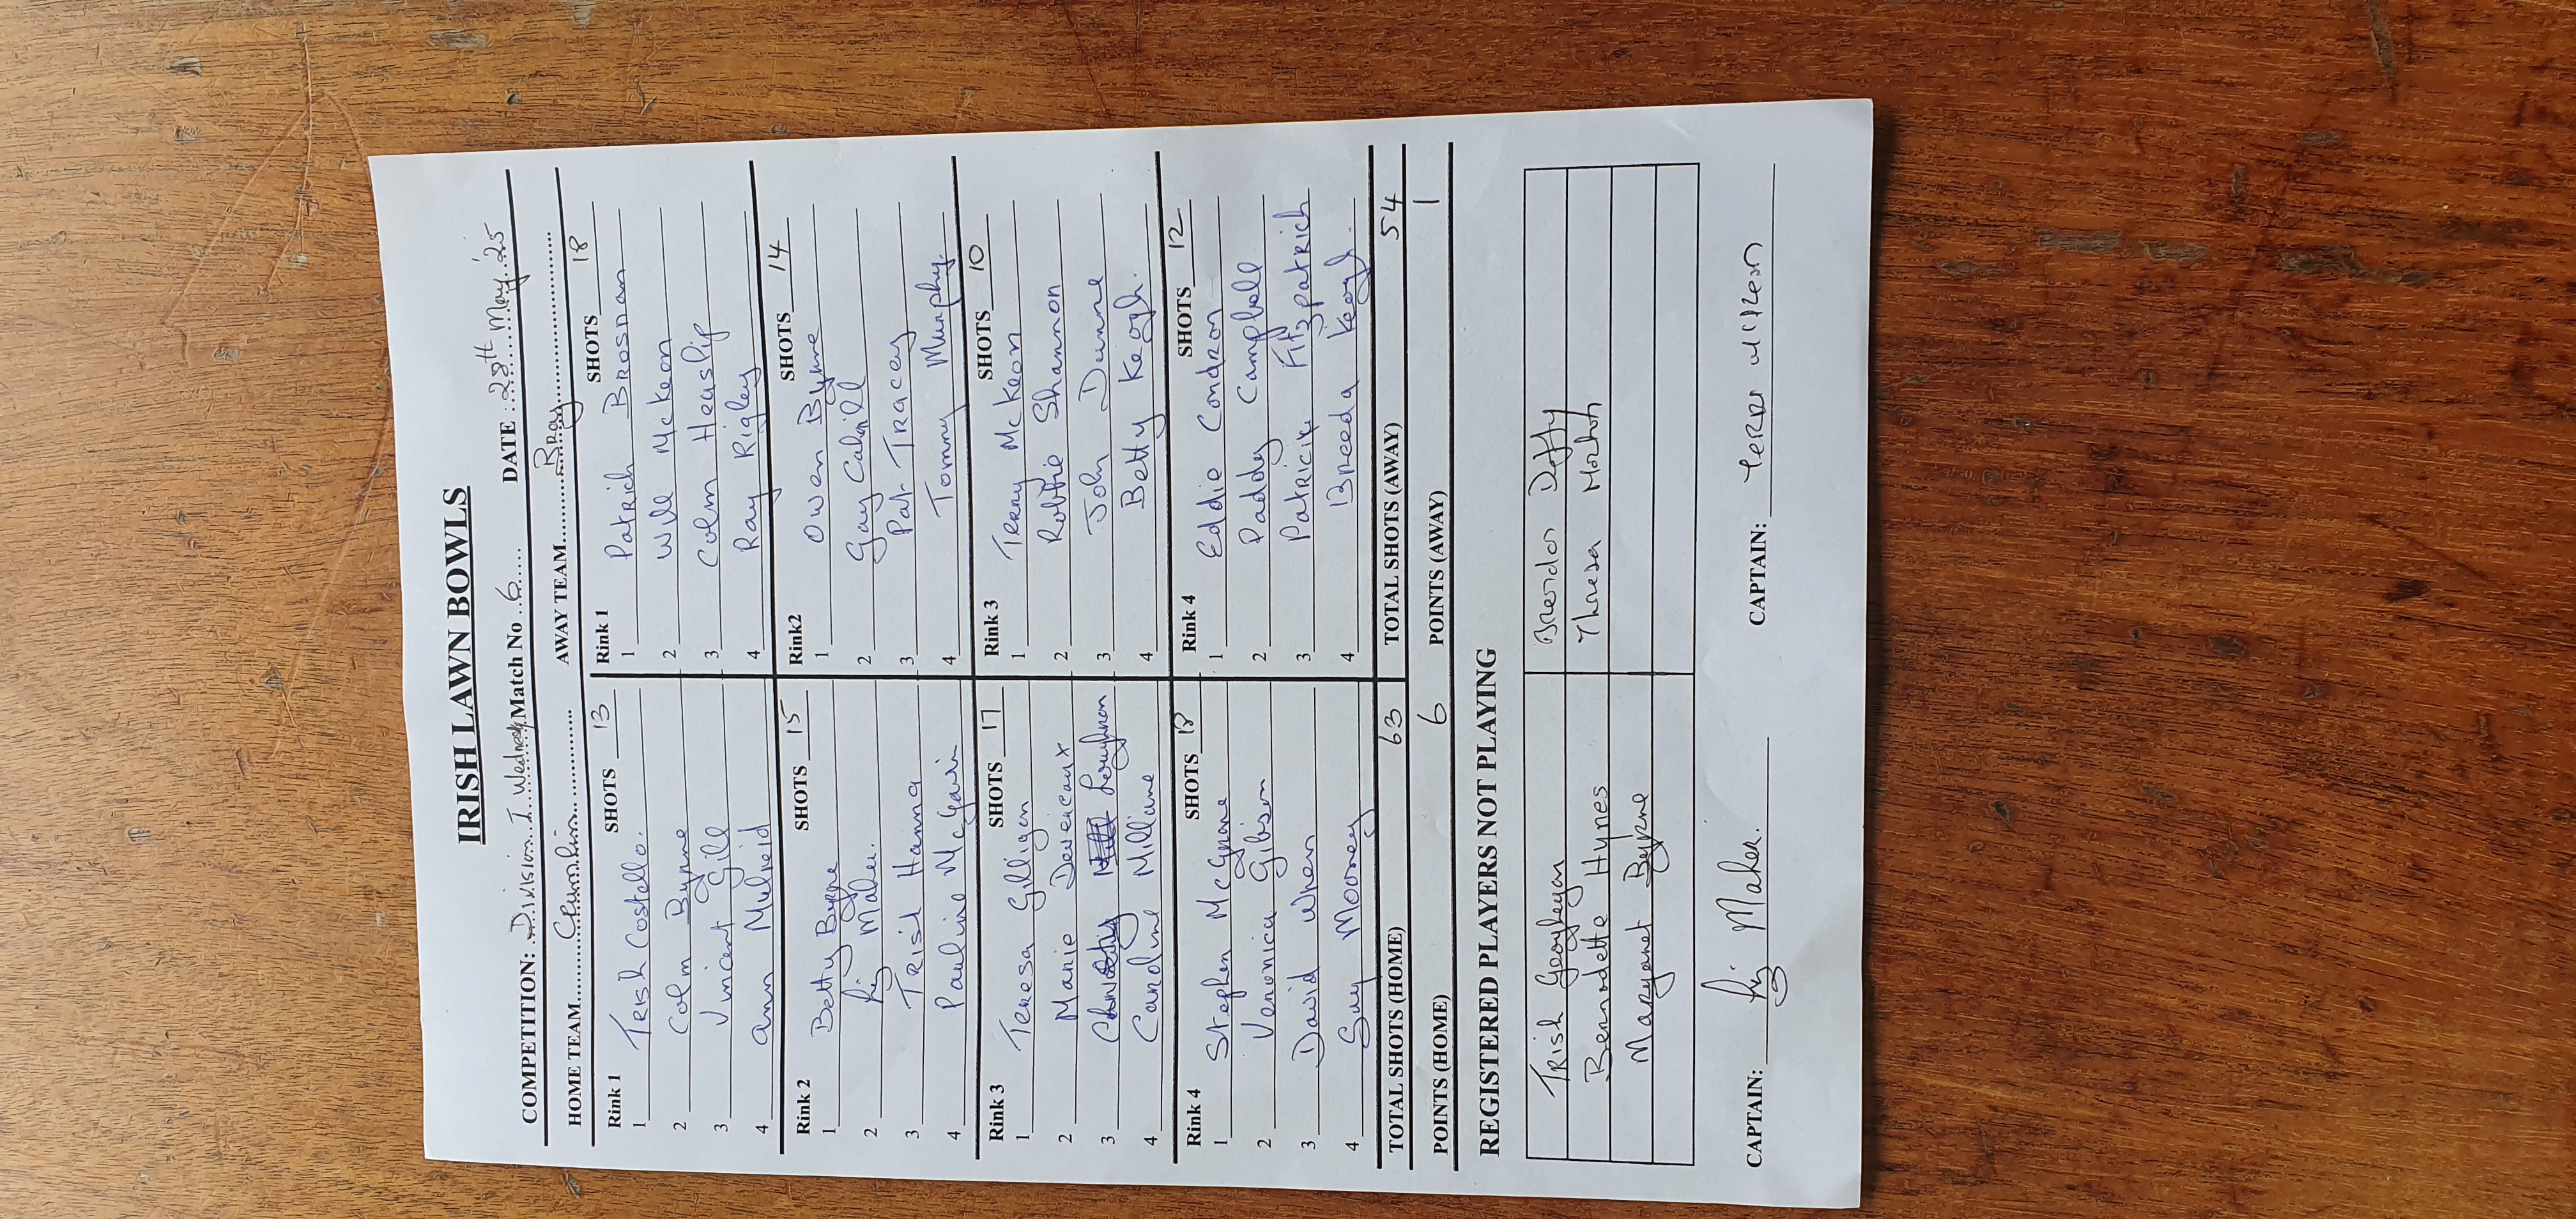 IRISH LAWN BOWLS
COMPETITION: Division 1 Wednesday Match No 6 DATE 28th May '25
HOME TEAM Crumlin AWAY TEAM Bray
Rink 1 SHOTS 13 Rink 1 SHOTS 18
1 Trish Costello. 1 Patrick Brosnan
2 Colm Byrne 2 Will McKeon
3 Vincent Gill 3 Colm Heaslip
4 Ann Mulreid 4 Ray Rigley
Rink 2 SHOTS 15 Rink2 SHOTS 14
1 Betty Byrne 1 Owen Byrne
2 Maher. 2 Gay Cahill
3 Trish Hanna 3 Pat Tracey
4 Pauline McGavin 4 Tommy Murphy.
Rink 3 SHOTS 17 Rink 3 SHOTS 10
1 Teresa Gilligan 1 Terry McKeon
2 Marie Devereaux 2 Robbie Shannon
3 Loughnan 3 John Dunne
4 Caroline Milliane 4 Betty Keogh.
Rink 4 SHOTS 18 Rink 4 SHOTS 12
1 Stephen McGrane 1 Eddie Condron
2 Veronica Gibson 2 Paddy Campbell
3 David Whern 3 Patricia Fitzpatrick
4 Guy Mooney 4 Breeda Keogh.
TOTAL SHOTS (HOME) 63 TOTAL SHOTS (AWAY) 54
POINTS (HOME) 6 POINTS (AWAY) 1
REGISTERED PLAYERS NOT PLAYING
Trish Geoghegan Brendan Duffy
Bernadette Hynes Theresa
Margaret Byrne
CAPTAIN: Maher. CAPTAIN: Terry McKeon